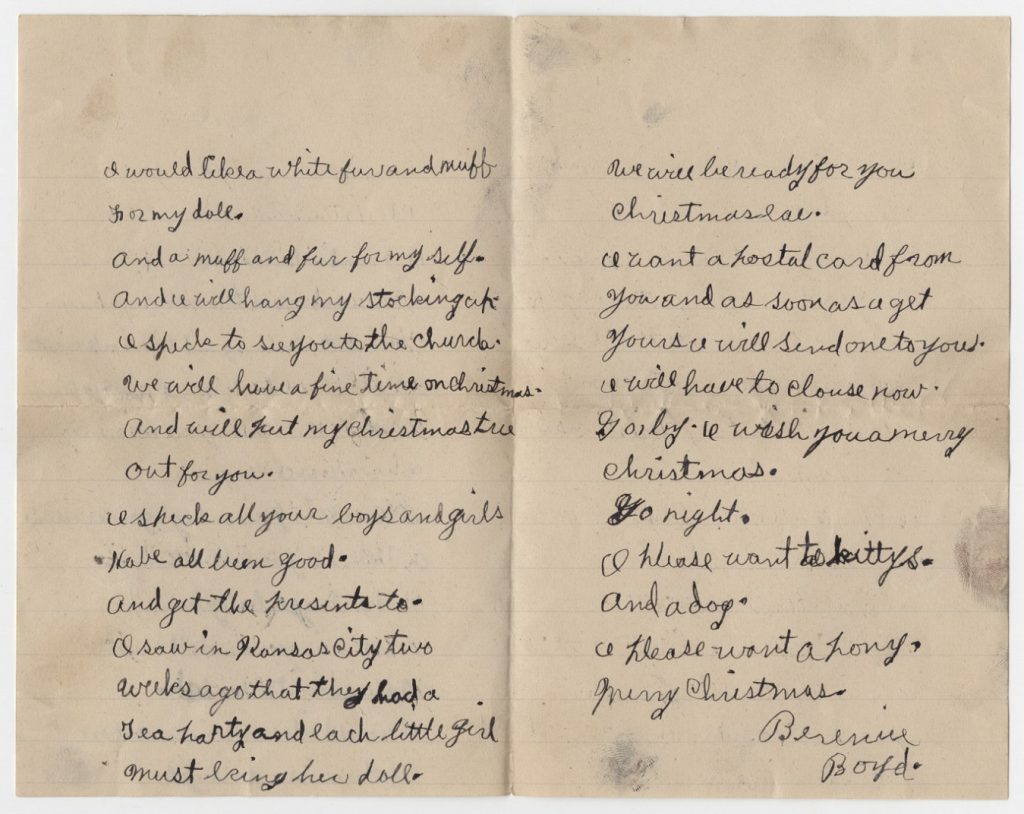 I would like a white fur and muff
For my doll.
And a muff and fur for my self.
And I will hang my stocking up
I speck to see you to the church.
We will have a fine time on christmas.
And will put my christmas tree
out for you.
I speck all your boys and girls
Have all been good.
And get the presints to.
I saw in Kansas City two
weeks ago that they had a
Tea party and each little girl
must bring her doll.
We will be ready for you
Christmas eae.
I want a postal card from
you and as soon as I get
yours I will send one to you.
I will have to clouse now.
Goiby. I wish you a merry
christmas.
Go night.
I please want to kittys.
And a dog.
I please want a pony.
Merry Christmas.
Berenice
Boyd.